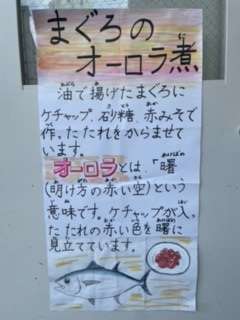 まぐろの
オーロラ煮
油で揚げたまぐろに
ケチャップ、砂糖、赤みそで
作ったたれをからませて
います。
オーロラとは、「曙
(明け方の赤い空)という
意味です。ケチャップが入っ
たたれの赤い色を曙に
見立てています。